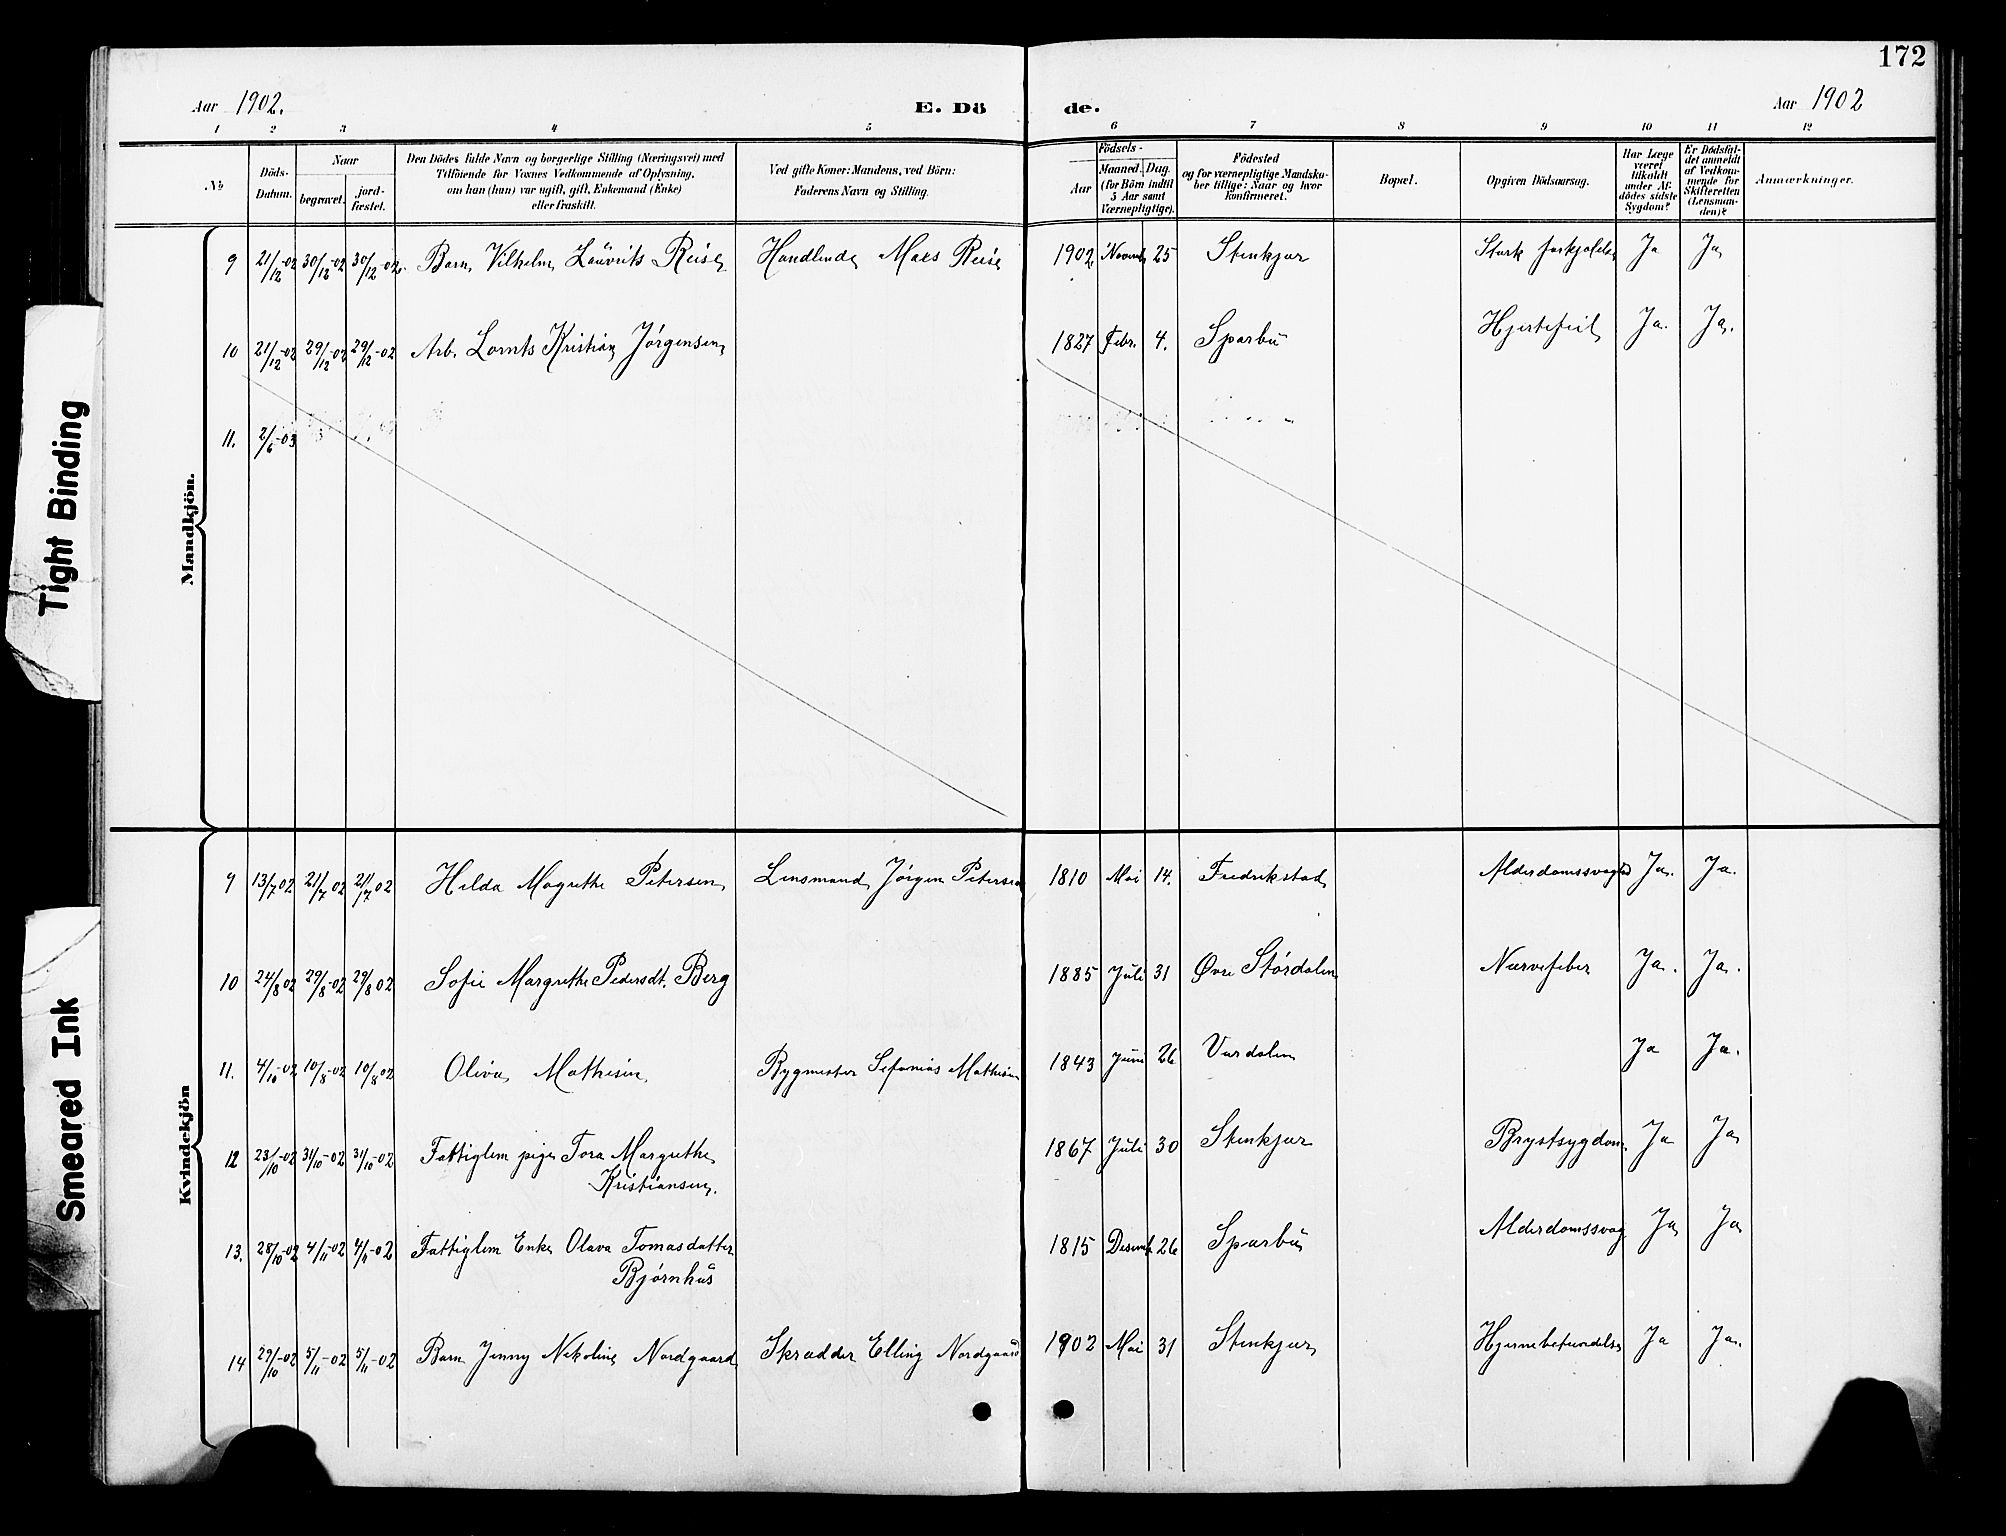 172
Aar 1902. E. Dö de. Aar 1902
1 2 3 4 5 6 7 8 9 10 11 12
№
Döds-Datum.
Naar
begravet.
jord-fæstet.
Den Dödes fulde Navn og borgerlige Stilling (Næringsvei) med
Tilföiende for Voxnes Vedkommende af Oplysning,
om han (hun) var ugift, gift, Enkemand (Enke)
eller fraskilt.
Ved gifte Koner: Mandens, ved Börn:
Faderens Navn og Stilling.
Födsels-
Aar
Maaned. Dag.
(for Börn indtil
5 Aar samt
Værnepligtige).
Födested
og for værnepligtige Mandska-
ber tillige: Naar og hvor
konfirmeret.
Bopæl.
Opgiven Dödsaarsag.
Har Læge
været
tilkaldt
under Af-
dödes sidste
Sygdom?
Er Dödsfal-
det anmeldt
af Vedkom-
mende for
Skifteretten
(Lensman-
den)?
Anmærkninger.
Mandkjön.
9 21/12-02 30/12-02 30/12-02. Barn Vilhelm Lauvrits Reise Handlende Maes Reise 1902 Novemb 25 Stenkjær Stærk Ja Ja
10 21/12-02 29/12-02 29/12-02 Arb. Lornts Kristian Jørgensen 1827 Febr. 4. Sparbu Hjertefeil Ja. Ja.
11. 2/6-03
Kvindekjön
9 13/7 02 21/7 02 21/7 02 Hilda Magrethe Petersen Lensmand Jørgen Petersen 1810 Mai 14. Fredrikstad Alderdomssvaghed Ja. Ja.
10 24/8 02 29/8-02 29/8 02 Sofie Margrethe Pedersdt. Berg 1885 Juli 31 Øvre Størdalen Nervefeber Ja. Ja.
11. 4/10-02 10/8-02 10/8 02 Oliva Mathisen Bygmester Sefanias Mathisen 1843 Juni 26 Værdalen Ja Ja.
12 23/10-02 31/10-02 31/10-02 Fattiglem pige Tora Margrethe
Kristiansen. 1867 Juli 30 Stenkjær Brystsygdom Ja Ja
13. 28/10-02 4/11-02 4/11-02 Fattiglem Enke Olava Tomasdatter
Bjørnhus 1815 Desemb. 26 Sparbu Alderdomssvag Ja Ja
14 29/10-02 5/11-02 5/11-02 Barn Jenny Nikoline Nordgaard Skrædder Elling Nordgaard 1902 Mai 31 Stenkjær Hjernebetændelse Ja Ja.
Tight Binding
Smeared Ink